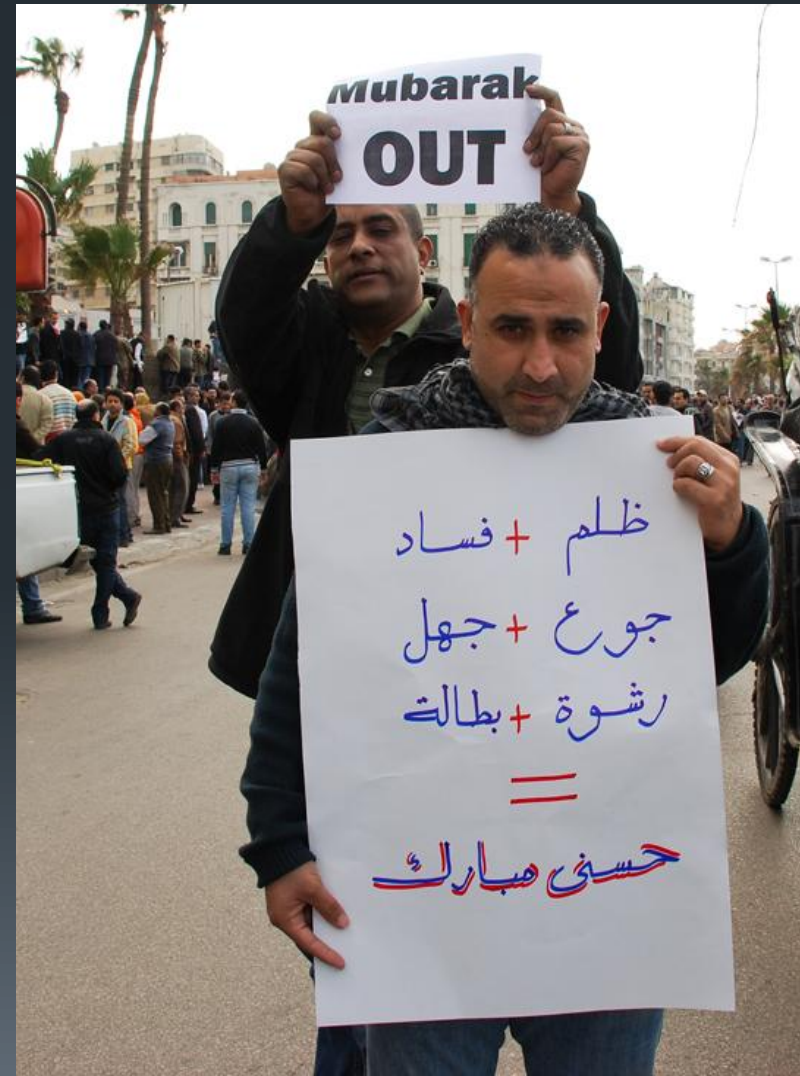 Mubarak
OUT
ظلم + فساد
جوع + جهل
رشوة + بطالة
=
حسنى مبارك